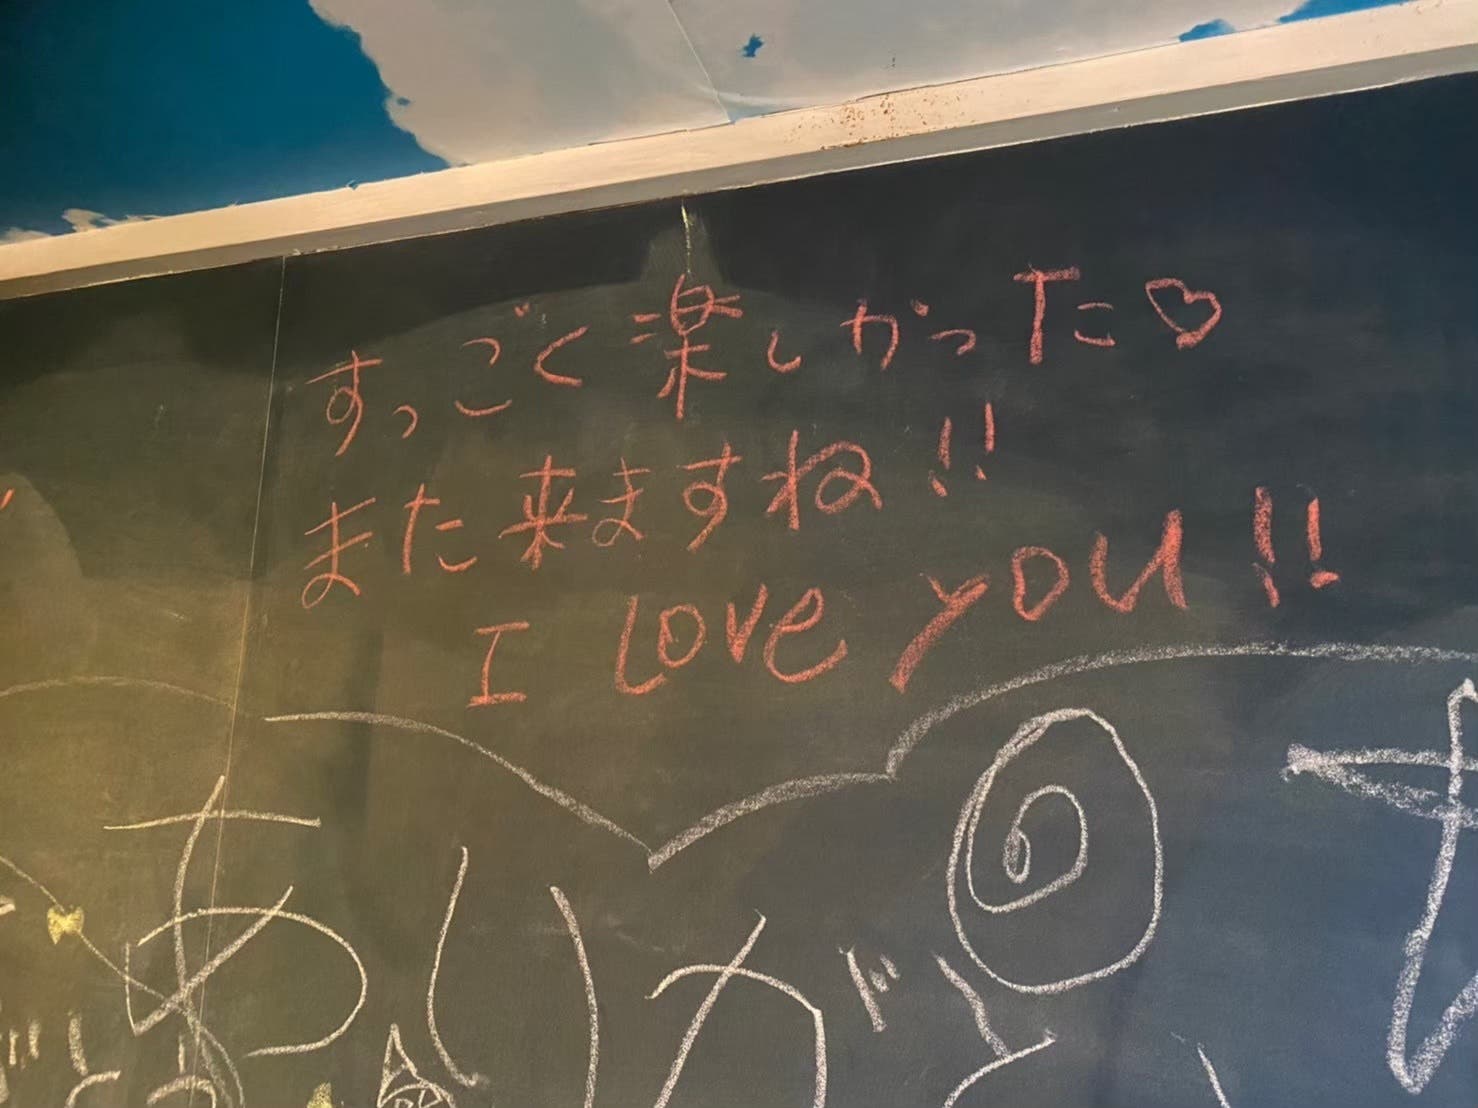 すっごく楽しかった♡
また来ますね!!
I Love you!!
ありがと